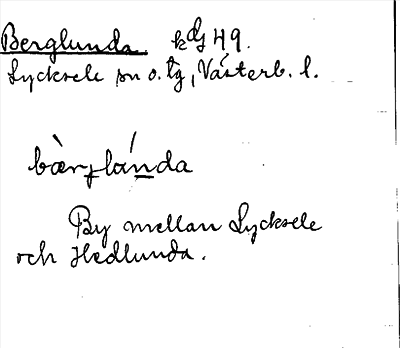 Berglunda kdg 49.
Lycksele sn o. tg, Västerb. l.
bàrɟlánda
By mellan Lycksele
och Hedlunda.